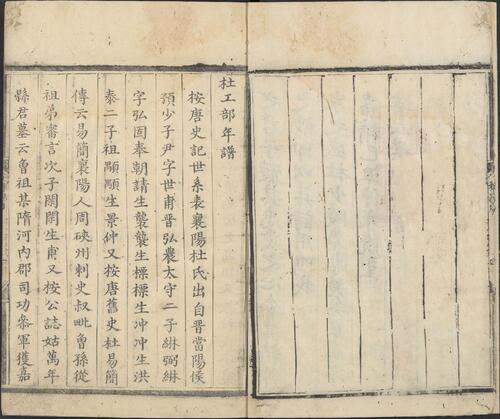 杜工部年譜
按唐史記世系表襄陽杜氏出自晉當陽侯
預少子尹字世甫晉弘農太守二子綝弼綝
字弘固奉朝請生襲襲生摽摽生冲冲生洪
泰二子祖顒顒生景仲又按唐舊史杜易簡
傳云易簡襄陽人周硤州刺史叔毗曾孫從
祖弟審言次子閑閑生甫又按公誌姑萬年
縣君墓云曾祖某隋河內郡司功參軍獲嘉